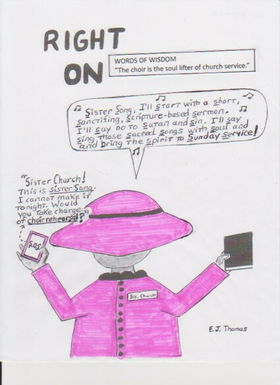 RIGHT
ON
WORDS OF WISDOM
"The choir is the soul lifter of church service."
Sister Song, I'll start with a short,
sanctifying, scripture-based sermon.
I'll say no to Satan and Sin. I'll say
sing those sacred songs with soul and
and bring the spirit to Sunday service!
"Sister Church!
This is Sister Song.
I cannot make it
tonight. Would
you take charge
of choir rehearsal?
Sis. Church
E.J. Thomas